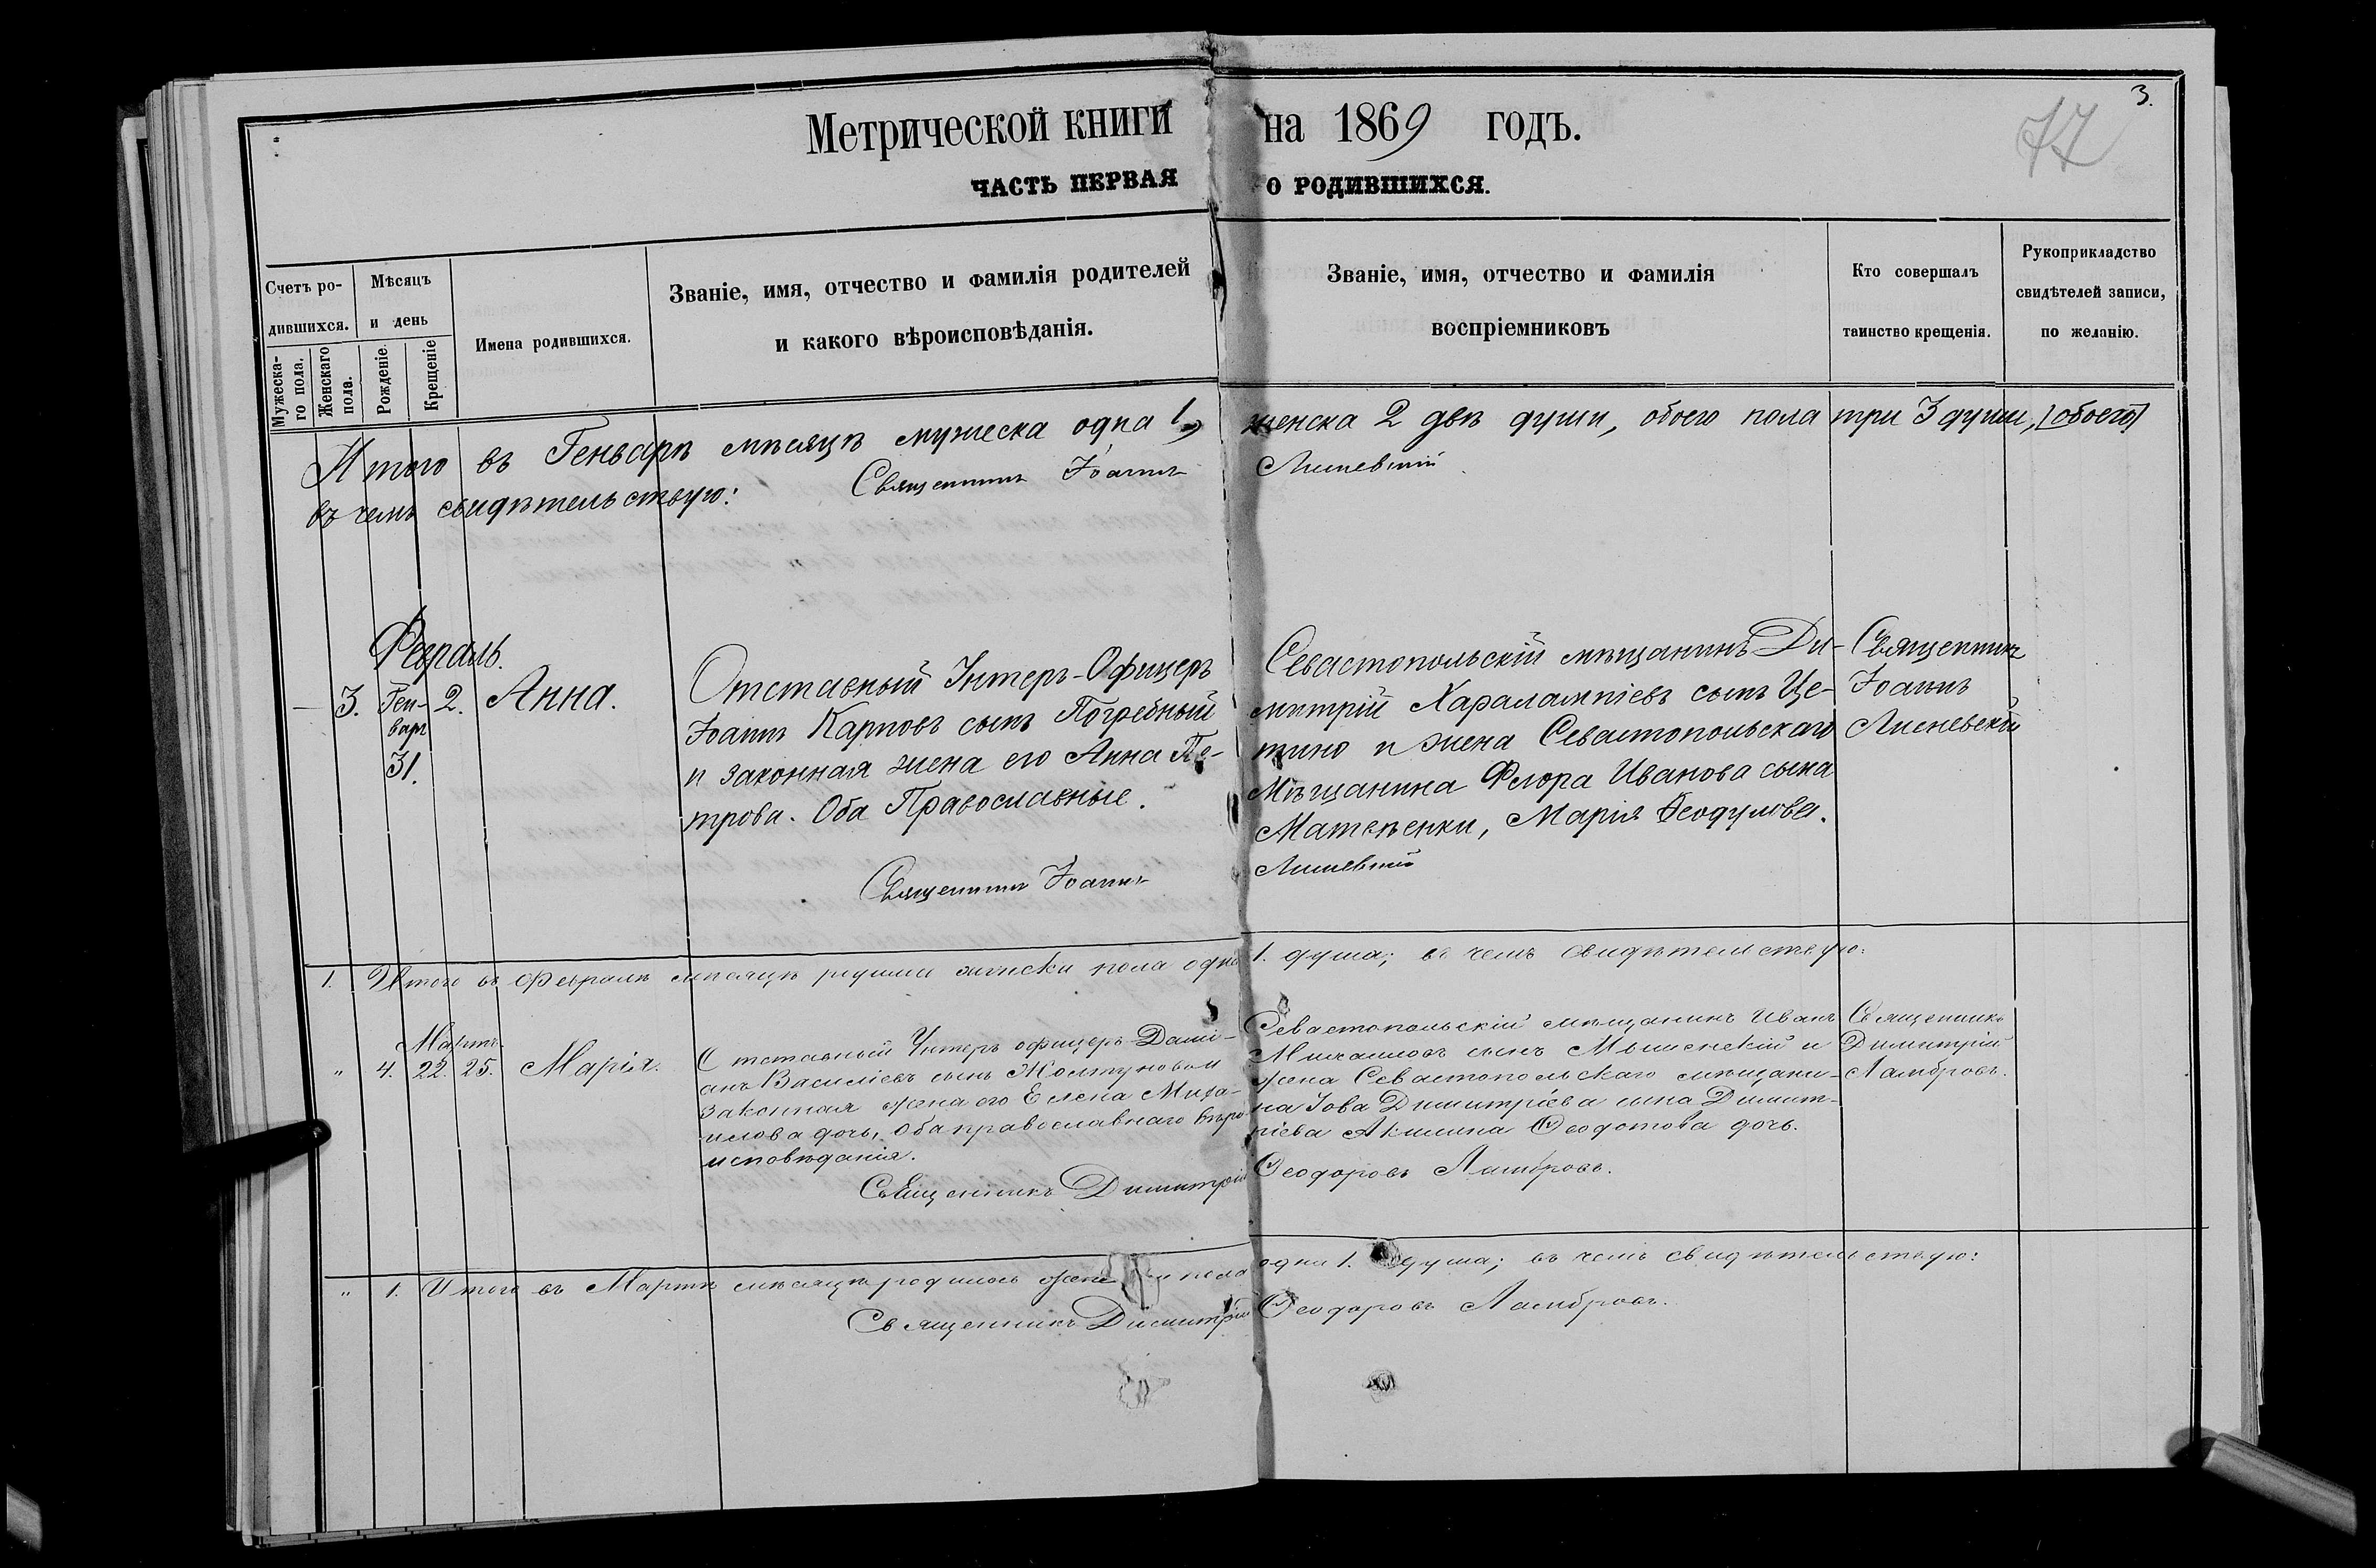 Метрической книги на 1869 годъ.
3.
77
ЧАСТЬ ПЕРВАЯ О РОДИВШИХСЯ.
Счетъ ро-
дившихся.
Мужеска-
го пола.
Женскаго
пола.
Мѣсяцъ
и день
Рожденіе.
Крещеніе
Имена родившихся.
Званіе, имя, отчество и фамилія родителей
и какого вѣроисповѣданія.
Званіе, имя, отчество и фамилія
воспріемниковъ
Кто совершалъ
таинство крещенія.
Рукоприкладство
свидѣтелей записи,
по желанію.
Итого въ Генварѣ мѣсяцѣ мужеска одна 1, женска 2 двѣ души, обоего пола три 3 души, [обоего]
въ чемъ свидѣтельствую: Священникъ Іоаннъ Лисневскій
Февраль.
3. Ген-
варь
31.
2. Анна.
Отставный Унтеръ-Офицеръ
Іоаннъ Карповъ сынъ Погребный
и законная жена его Анна Пе-
трова. Оба Православные.
Севастопольскій мѣщанинъ Ди-
митрій Харалампіевъ сынъ Це-
тино и жена Севастопольскаго
Мѣщанина Флора Иванова сына
Матвѣенки, Марія Ѳеодулова.
Священникъ
Іоаннъ
Лисневскій
Священникъ Іоаннъ Лисневскій
1. Итого въ Февралѣ мѣсяцѣ женска пола одна 1. душа; въ чемъ свидѣтельствую:
Мартъ.
" 4. 22. 25. Марія.
Отставный Унтеръ офицеръ Дамі-
анъ Василіевъ сынъ
законная жена его Елена Миха-
илова дочь, оба православнаго вѣро
исповѣданія.
Севастопольскій мѣщанинъ Иванъ
Михаиловъ сынъ и
жена Севастопольскаго мѣщани-
на Іова Димитріева сына Димит-
ріева Акилина Ѳеодотова дочь.
Священникъ
Димитрій
Ламбровъ.
Священникъ Димитрій Ѳеодоровъ Ламбровъ.
" 1. Итого въ Мартѣ мѣсяцѣ родилось женска пола одна 1. душа; въ чемъ свидѣтельствую:
Священникъ Димитрій Ѳеодоровъ Ламбровъ.